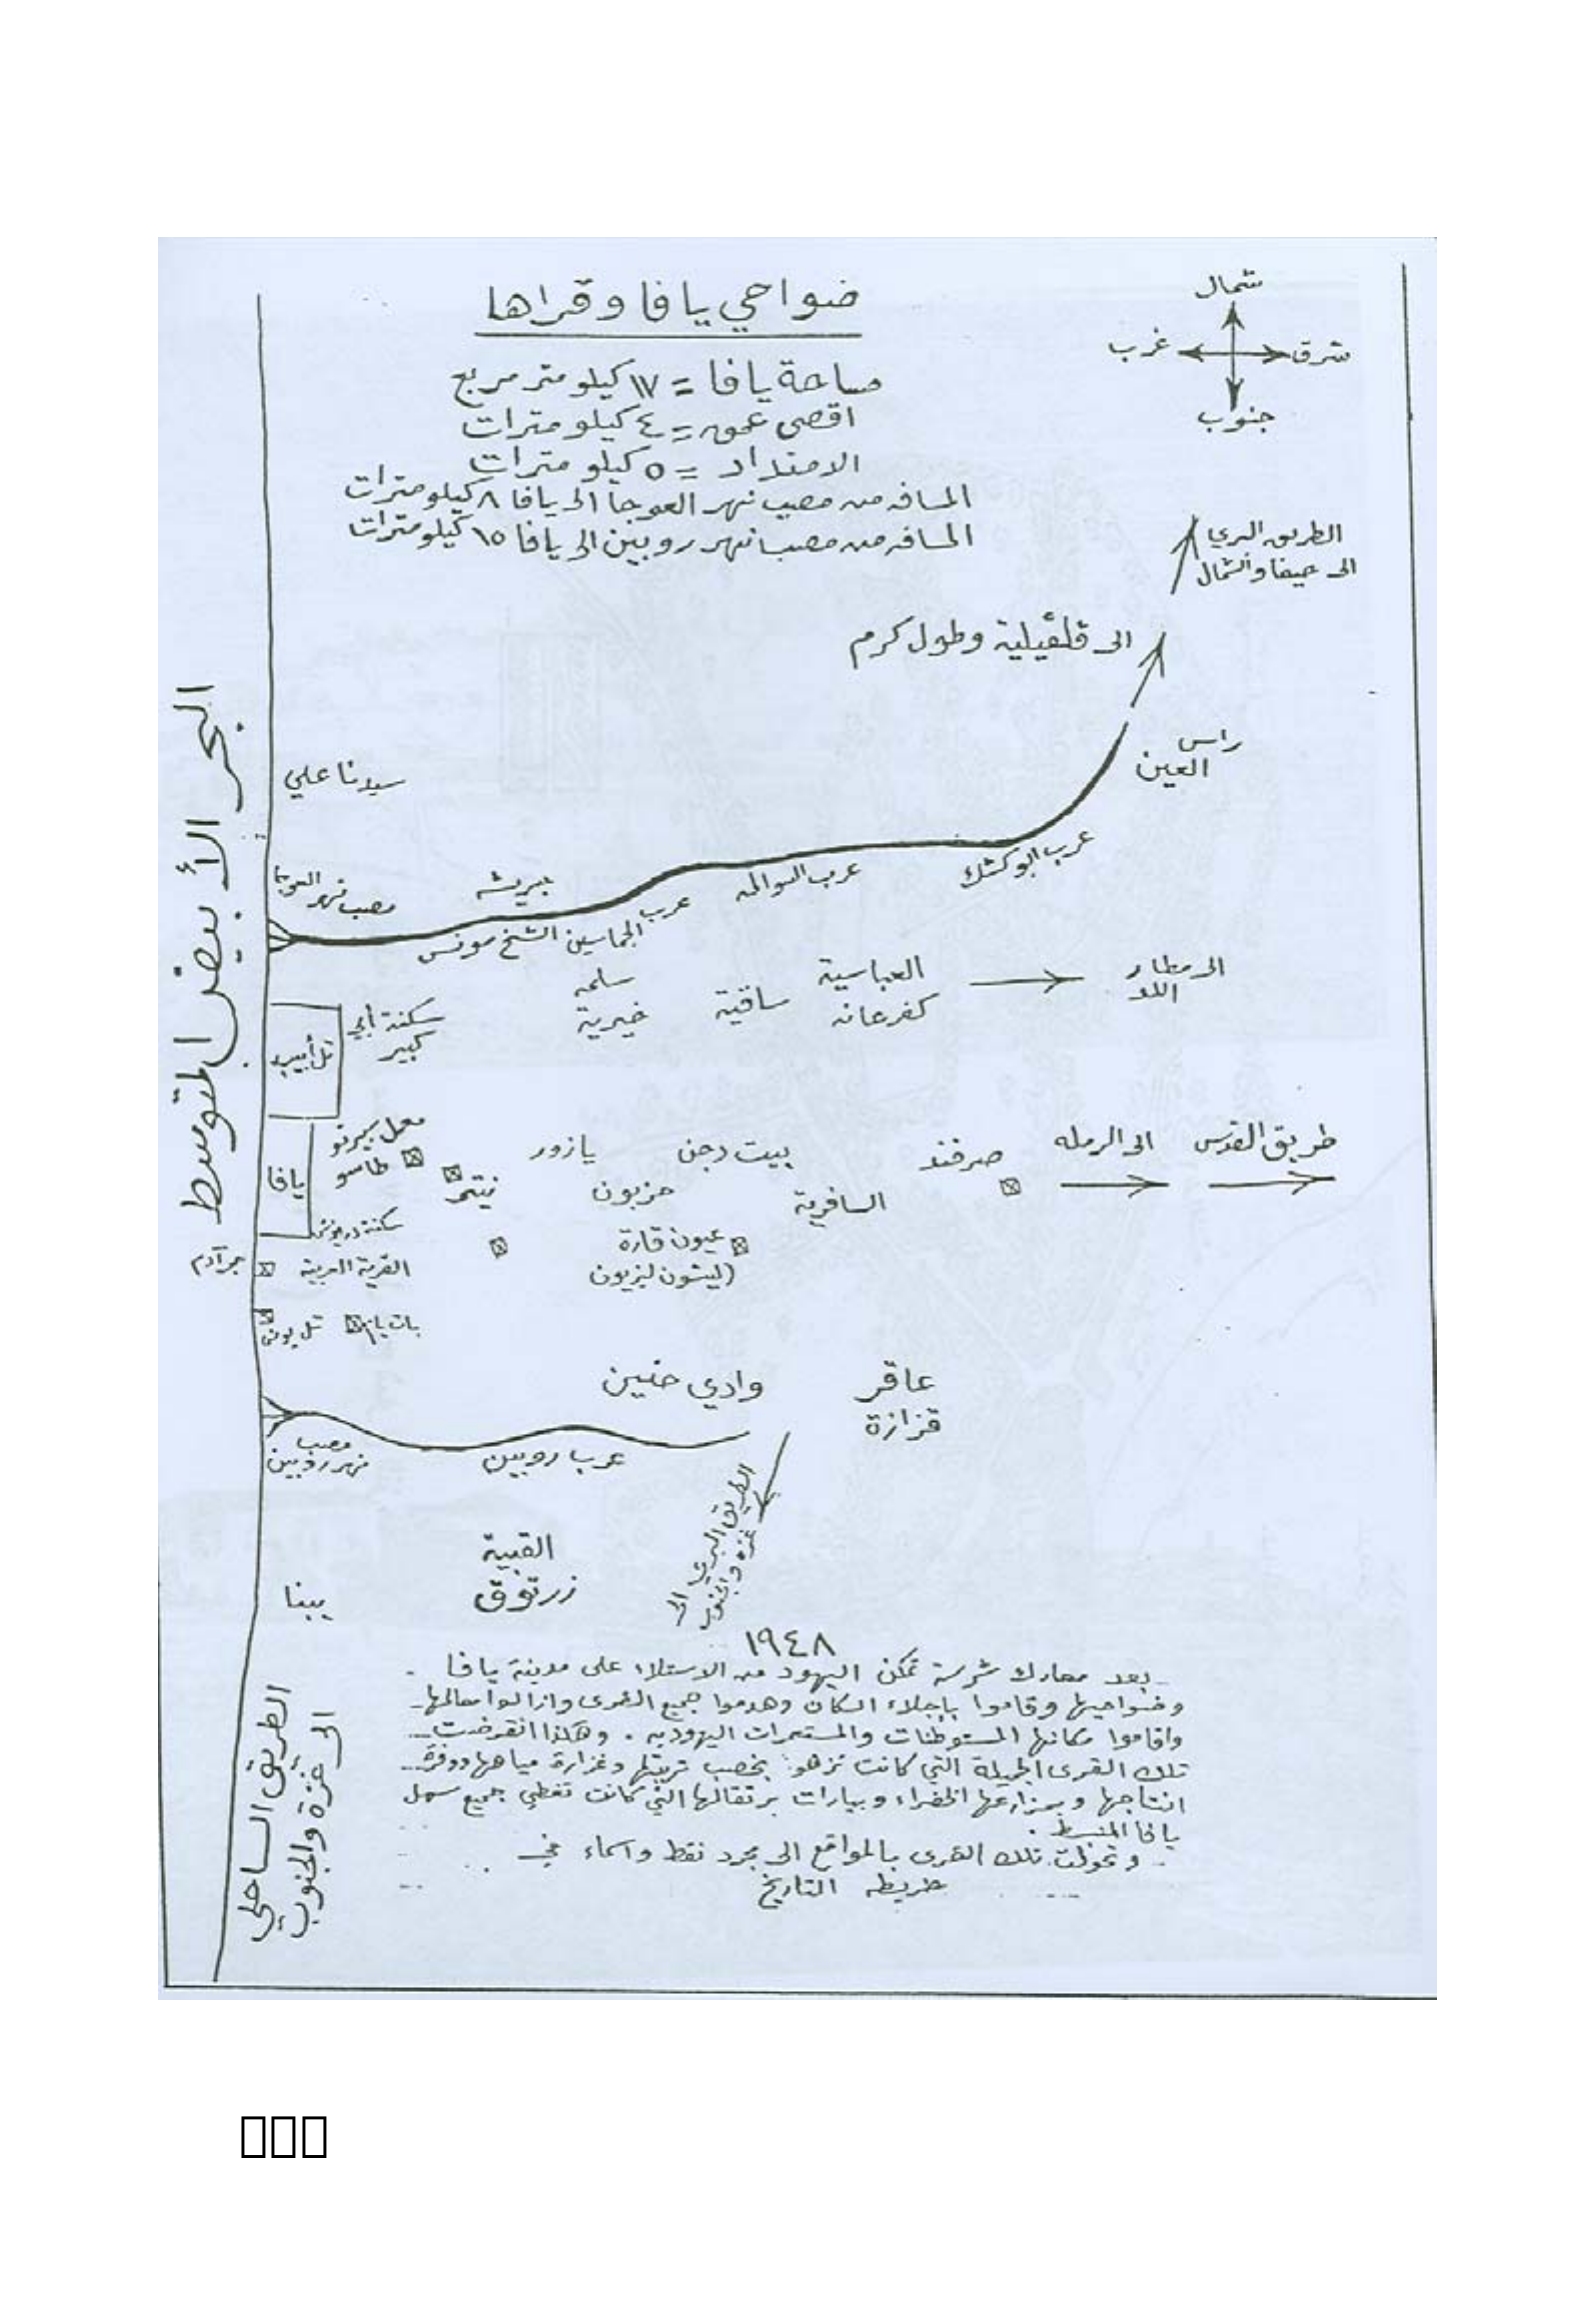 ضواحي يافا وقراها
شمال
غرب
شرق
جنوب
مساحة يافا = ١٧ كيلو متر مربع
اقصى عمق = ٤ كيلو مترات
الامتداد = ٥ كيلو مترات
المسافه من مصب نهر العوجا الى يافا ٨ كيلو مترات
المسافه من مصب نهر روبين الى يافا ١٥ كيلو مترات
الطريق البري
الى حيفا والشمال
الى قلقيلية وطول كرم
راس
العين
البحر الأبيض المتوسط
سيدنا علي
مصب نهر العوجا
جريشه
عرب ابو كشك
عرب السوالمه
عرب
الجماسين
الشيخ مونس
سلمه
خيرية
ساقية
العباسية
كفر عانه
الى مطار
اللد
سكنة أبي
كبير
تل أبيب
يافا
معمل سبيرتو
طاسو
نيتر
يازور
بيت دجن
صرفند
الى الرمله
طريق القدس
حزبون
السافرية
سكنة درويش
عيون قارة
(ليشون ليزيون
القرية العربية
بات يام
تل يونس
وادي حنين
عاقر
قزازة
مصب
نهر روبين
عرب روبين
الطريق البري الى
غزه والجنوب
القبية
زرتوق
يبنا
الطريق الساحلي
الى غزة والجنوب
١٩٤٨
بعد معارك شرسة تمكن اليهود من الاستلاء على مدينة يافا
وضواحيها وقاموا بإجلاء السكان وهدموا جميع القرى وازالوا معالمها
واقاموا مكانها المستوطنات والمستعمرات اليهودية . وهكذا انقرضت
تلك القرى الجميلة التي كانت تزهو بخصب تربتها وغزارة مياهها ووفرة
انتاجها وبمزارعها الخضراء وبيارات برتقالها التي كانت تغطي جميع سهل
يافا المنبسط .
وتحولت تلك القرى بالمواقع الى مجرد نقط واسماء في
خريطه التاريخ